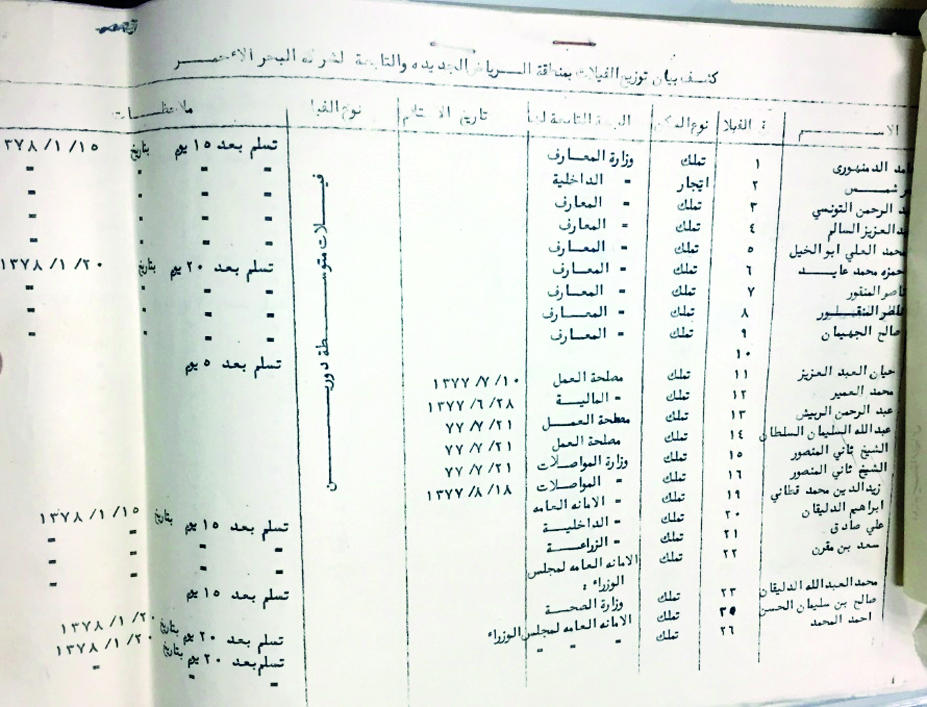 كشف بيان توزيع الفيلات بمنطقة الرياض الجديده والتابعة لشركة البحر الأحمر
الاســـم ر الفيلا نوع السكن الجهة التابعة لها تاريخ الاستلام نوع الفيلا ملاحظــات
الدمنهورى ١ تملك وزارة المعارف تسلم بعد ١٥ يوم بتاريخ ١٣٧٨/١/١٥
شمس ٢ ايجار " الداخلية " " " "
الرحمن التونسي ٣ تملك " المعارف " " " "
عبدالعزيز السالم ٤ تملك " المعارف " " " "
محمد العلي ابو الخيل ٥ تملك " المعارف " " " "
حمزه محمد عابد ٦ تملك " المعارف تسلم بعد ٢٠ يوم بتاريخ ١٣٧٨/١/٢٠
ناصر المنقور ٧ تملك " المعارف " " " "
المنقور ٨ تملك " المعارف " " " "
صالح الجهيمان ٩ تملك " المعارف " " " "
١٠
حيان العبد العزيز ١١ تملك مصلحة العمل ١٣٧٧/٧/١٠ تسلم بعد ٥ يوم
محمد العمير ١٢ تملك " المالية ١٣٧٧/٦/٢٨
عبد الرحمن الربيش ١٣ تملك مصلحة العمل ٧٧/٧/٢١
عبدالله السليمان السلطان ١٤ تملك مصلحة العمل ٧٧/٧/٢١
الشيخ ثاني المنصور ١٥ تملك وزارة المواصلات ٧٧/٧/٢١
الشيخ ثاني المنصور ١٦ تملك " المواصلات ١٣٧٧/٨/١٨
زيد الدين محمد قطاني ١٩ تملك " الامانه العامه
ابراهيم الدليقان ٢٠ تملك " الداخلية تسلم بعد ١٥ يوم بتاريخ ١٣٧٨/١/١٥
علي صادق ٢١ تملك " الزراعة " " " "
سعد بن مقرن ٢٢ تملك الامانه العامه لمجلس " " " "
الوزراء :
محمد العبدالله الدليقان ٢٣ تملك وزارة الصحة تسلم بعد ١٥ يوم
صالح بن سليمان الحسن تملك الامانه العامه لمجلس الوزراء تسلم بعد ٢٠ يوم بتاريخ ١٣٧٨/١/٢٠
احمد المحمد ٢٦ تملك " " " تسلم بعد ٢٠ يوم بتاريخ ١٣٧٨/١/٢٠
فيـلات متوسـطة دوريـن